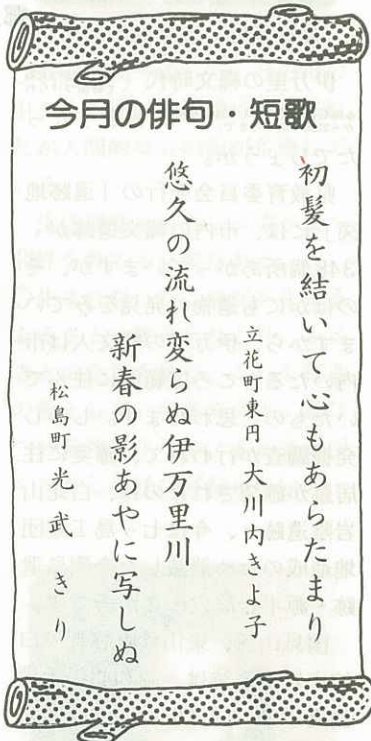 今月の俳句・短歌
初髪を結いて心もあらたまり
立花町東円 大川内きよ子
悠久の流れ変らぬ伊万里川
新春の影あやに写しぬ
松島町 光武きり